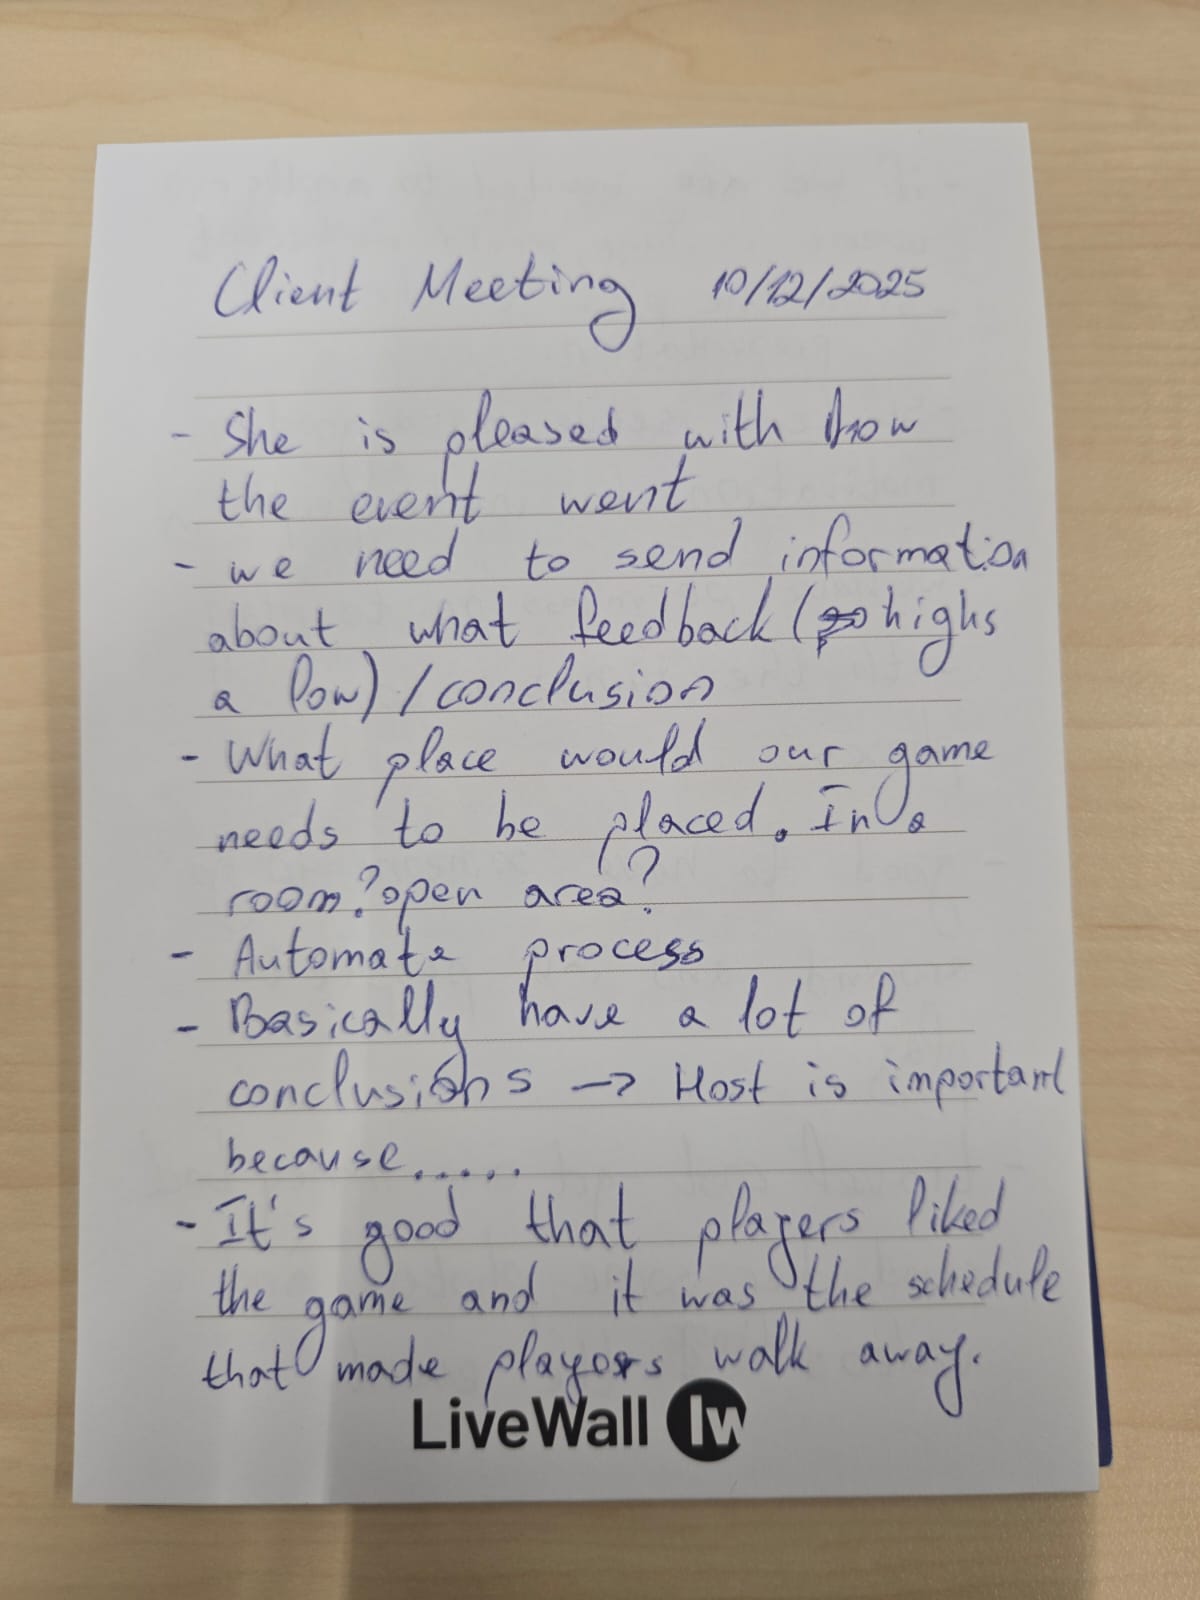 Client Meeting 10/12/2025
- She is pleased with how
the event went
- we need to send information
about what feedback (highs
a low) / conclusion
- What place would our game
needs to be placed. In a
room? open area?
- Automate process
- Basically have a lot of
conclusions -> Host is important
because.....
- It's good that players liked
the game and it was the schedule
that made players walk away.
LiveWall lw